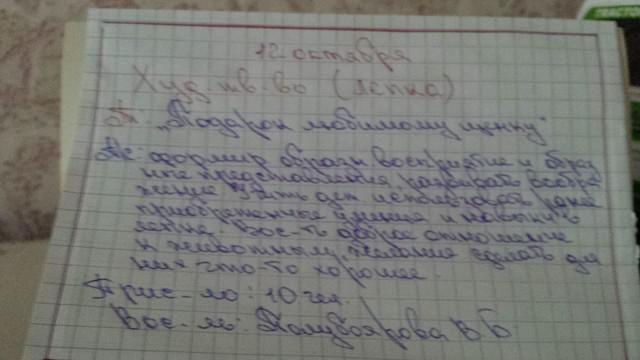 12 октября
Худ. тв-во (лепка)
Т: "Подарок любимому щенку"
Пс: сформир образы восприятие и образ
ные представления, развивать вообра
жение. Учить дет использовать ранее
приобретенные умения и навыки в
лепке. Вос-ть доброе отношение
к животным, желание сделать для
них что-то хорошее.
Прис-ло: 10 чел.
Вос-ль: Полубоярова В Б